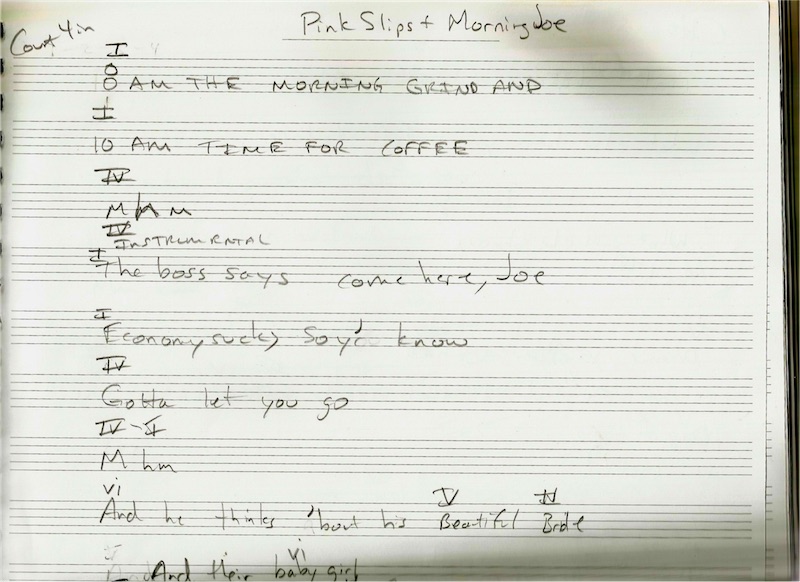 Pink Slips + Morning Joe
Count 4 in
I
8 AM THE MORNING GRIND AND
I
10 AM TIME FOR COFFEE
IV
MHM
IV
INSTRUMENTAL
I
The boss says come here, Joe
I
Economy sucks so y'know
IV
Gotta let you go
IV-I
Mhm
vi V IV
And he thinks 'bout his Beautiful Bride
vi
And their baby girl